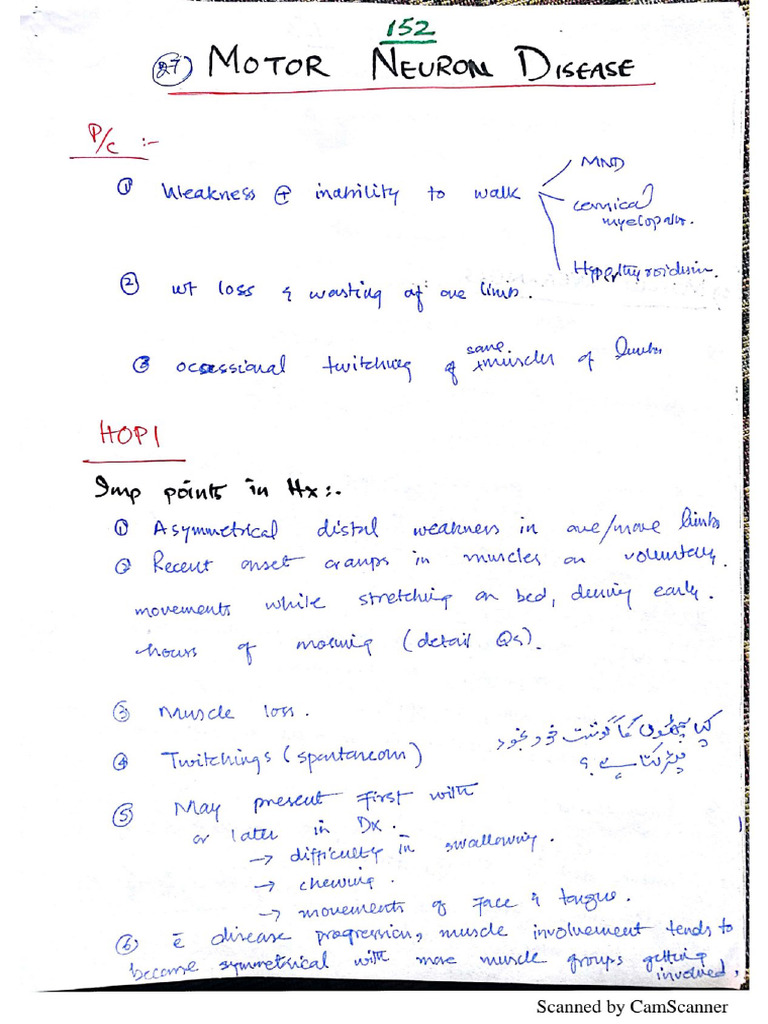 152
27) MOTOR NEURON DISEASE
P/c :-
① Weakness + inability to walk
MND
cervical
myelopathy.
Hyperthyroidism.
② wt loss & wasting of one limb.
③ occessional twitching of some muscles of limbs
HOPI
Imp points in Hx:-
① Asymmetrical distal weakness in one/more limbs
② Recent onset cramps in muscles on voluntary
movements while stretching on bed, during early
hours of morning (detail Qs).
③ Muscle loss.
④ Twitchings (spontaneous)
کیا پٹھوں کا گوشت خود بخود
پھڑکتا ہے ؟
⑤ May present first with
or later in Dx.
→ difficulty in swallowing.
→ chewing.
→ movements of Face & tongue.
⑥ c̄ disease progression, muscle involvement tends to
become symmetrical with more muscle groups getting
involved,
Scanned by CamScanner